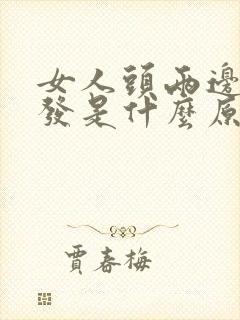 女人頭兩邊
發是什麼原
賈春梅